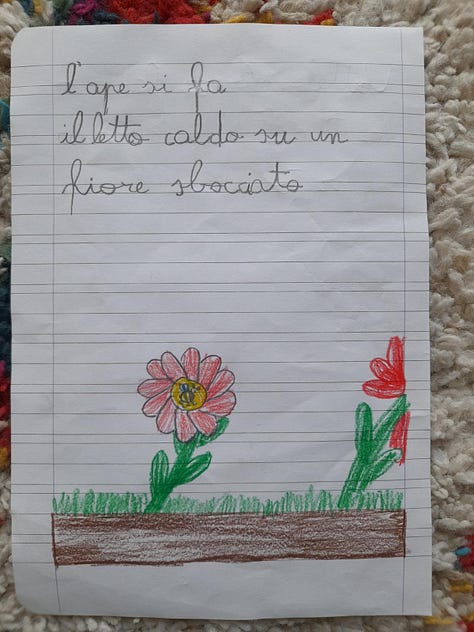 l'ape si fa
il letto caldo su un
fiore sbocciato